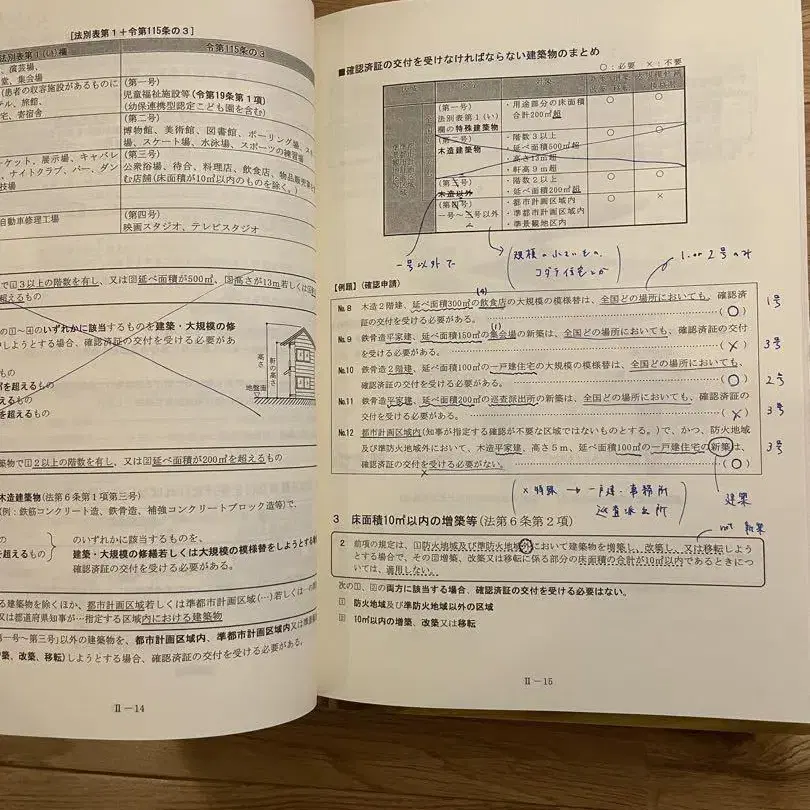 [法別表第1+令第115条の3]
法別表第1(い)欄
令第115条の3
、演芸場、
堂、集会場
(患者の収容施設があるものに
テル、旅館、
宅、寄宿舎
(第一号)
児童福祉施設等(令第19条第1項)
(幼保連携型認定こども園を含む)
(第二号)
博物館、美術館、図書館、ボーリング場、ス
場、スケート場、水泳場、スポーツの練習場
ーケット、展示場、キャバレ
、ナイトクラブ、バー、ダン
技場
(第三号)
公衆浴場、待合、料理店、飲食店、物品販売業
む店舗(床面積が10㎡以内のものを除く。)
自動車修理工場
(第四号)
映画スタジオ、テレビスタジオ
で①3以上の階数を有し、又は②延べ面積が500㎡、③高さが13m若しくは
超えるもの
の①~④のいずれかに該当するものを建築・大規模の修
しようとする場合、確認済証の交付を受ける必要があ
もの
を超えるもの
えるもの
超えるもの
高さ
軒の高さ
地盤面
築物で①2以上の階数を有し、又は②延べ面積が200㎡を超えるもの
木造建築物(法第6条第1項第三号)
例:鉄筋コンクリート造、鉄骨造、補強コンクリートブロック造等)で、
もの
を超えるもの
のいずれかに該当するものを、
建築・大規模の修繕若しくは大規模の模様替をしようとする
確認済証の交付を受ける必要がある。
る建築物を除くほか、都市計画区域若しくは準都市計画区域(…)若しくは
又は都道府県知事が…指定する区域内における建築物
第一号~第三号」以外の建築物を、都市計画区域内、準都市計画区域内又は準景
築、改築、移転)しようとする場合、確認済証の交付を受ける必要がある。
Ⅱ-14
■確認済証の交付を受けなければならない建築物のまとめ
○:必要 ×:不要
(第一号)
法別表第1(い)
欄の特殊建築物
・用途部分の床面積
合計200㎡超
○ ○
(第二号)
木造建築物
・階数3以上
・延べ面積500㎡超
・高さ13m超
・軒高9m超
○ ○
(第三号)
木造以外
・階数2以上
・延べ面積200㎡超
○ ○
(第四号)
一号~三号以外
・都市計画区域内
・準都市計画区域内
・準景観地区内
○ ×
一号以外で
(規模の小さいもの、
コダテ住宅とか)
1.or 2号のみ
【例題】(確認申請)
No.8 木造2階建、延べ面積300㎡の飲食店の大規模の模様替は、全国どの場所においても、確認済
証の交付を受ける必要がある。(○)
1号
No.9 鉄骨造平家建、延べ面積150㎡の集会場の新築は、全国どの場所においても、確認済証の交付
を受ける必要がある。(×)
3号
No.10 鉄骨造2階建、延べ面積100㎡の一戸建住宅の大規模の模様替は、全国どの場所においても、
確認済証の交付を受ける必要がある。(○)
2号
No.11 鉄骨造平家建、延べ面積200㎡の巡査派出所の新築は、全国どの場所においても、確認済証の
交付を受ける必要がある。(×)
3号
No.12 都市計画区域内(知事が指定する確認が不要な区域ではないものとする。)で、かつ、防火地域
及び準防火地域外において、木造平家建、高さ5m、延べ面積100㎡の一戸建住宅の新築は、
確認済証の交付を受ける必要がない。(○)
3号
×
(×特殊 → 一戸建・事務所
巡査派出所)
建築
not 新築
3 床面積10㎡以内の増築等(法第6条第2項)
2 前項の規定は、①防火地域及び準防火地域外において建築物を増築し、改築し、又は移転しよう
とする場合で、その②増築、改築又は移転に係る部分の床面積の合計が10㎡以内であるときにつ
いては、適用しない。
次の①、②の両方に該当する場合、確認済証の交付を受ける必要はない。
① 防火地域及び準防火地域以外の区域
② 10㎡以内の増築、改築又は移転
Ⅱ-15